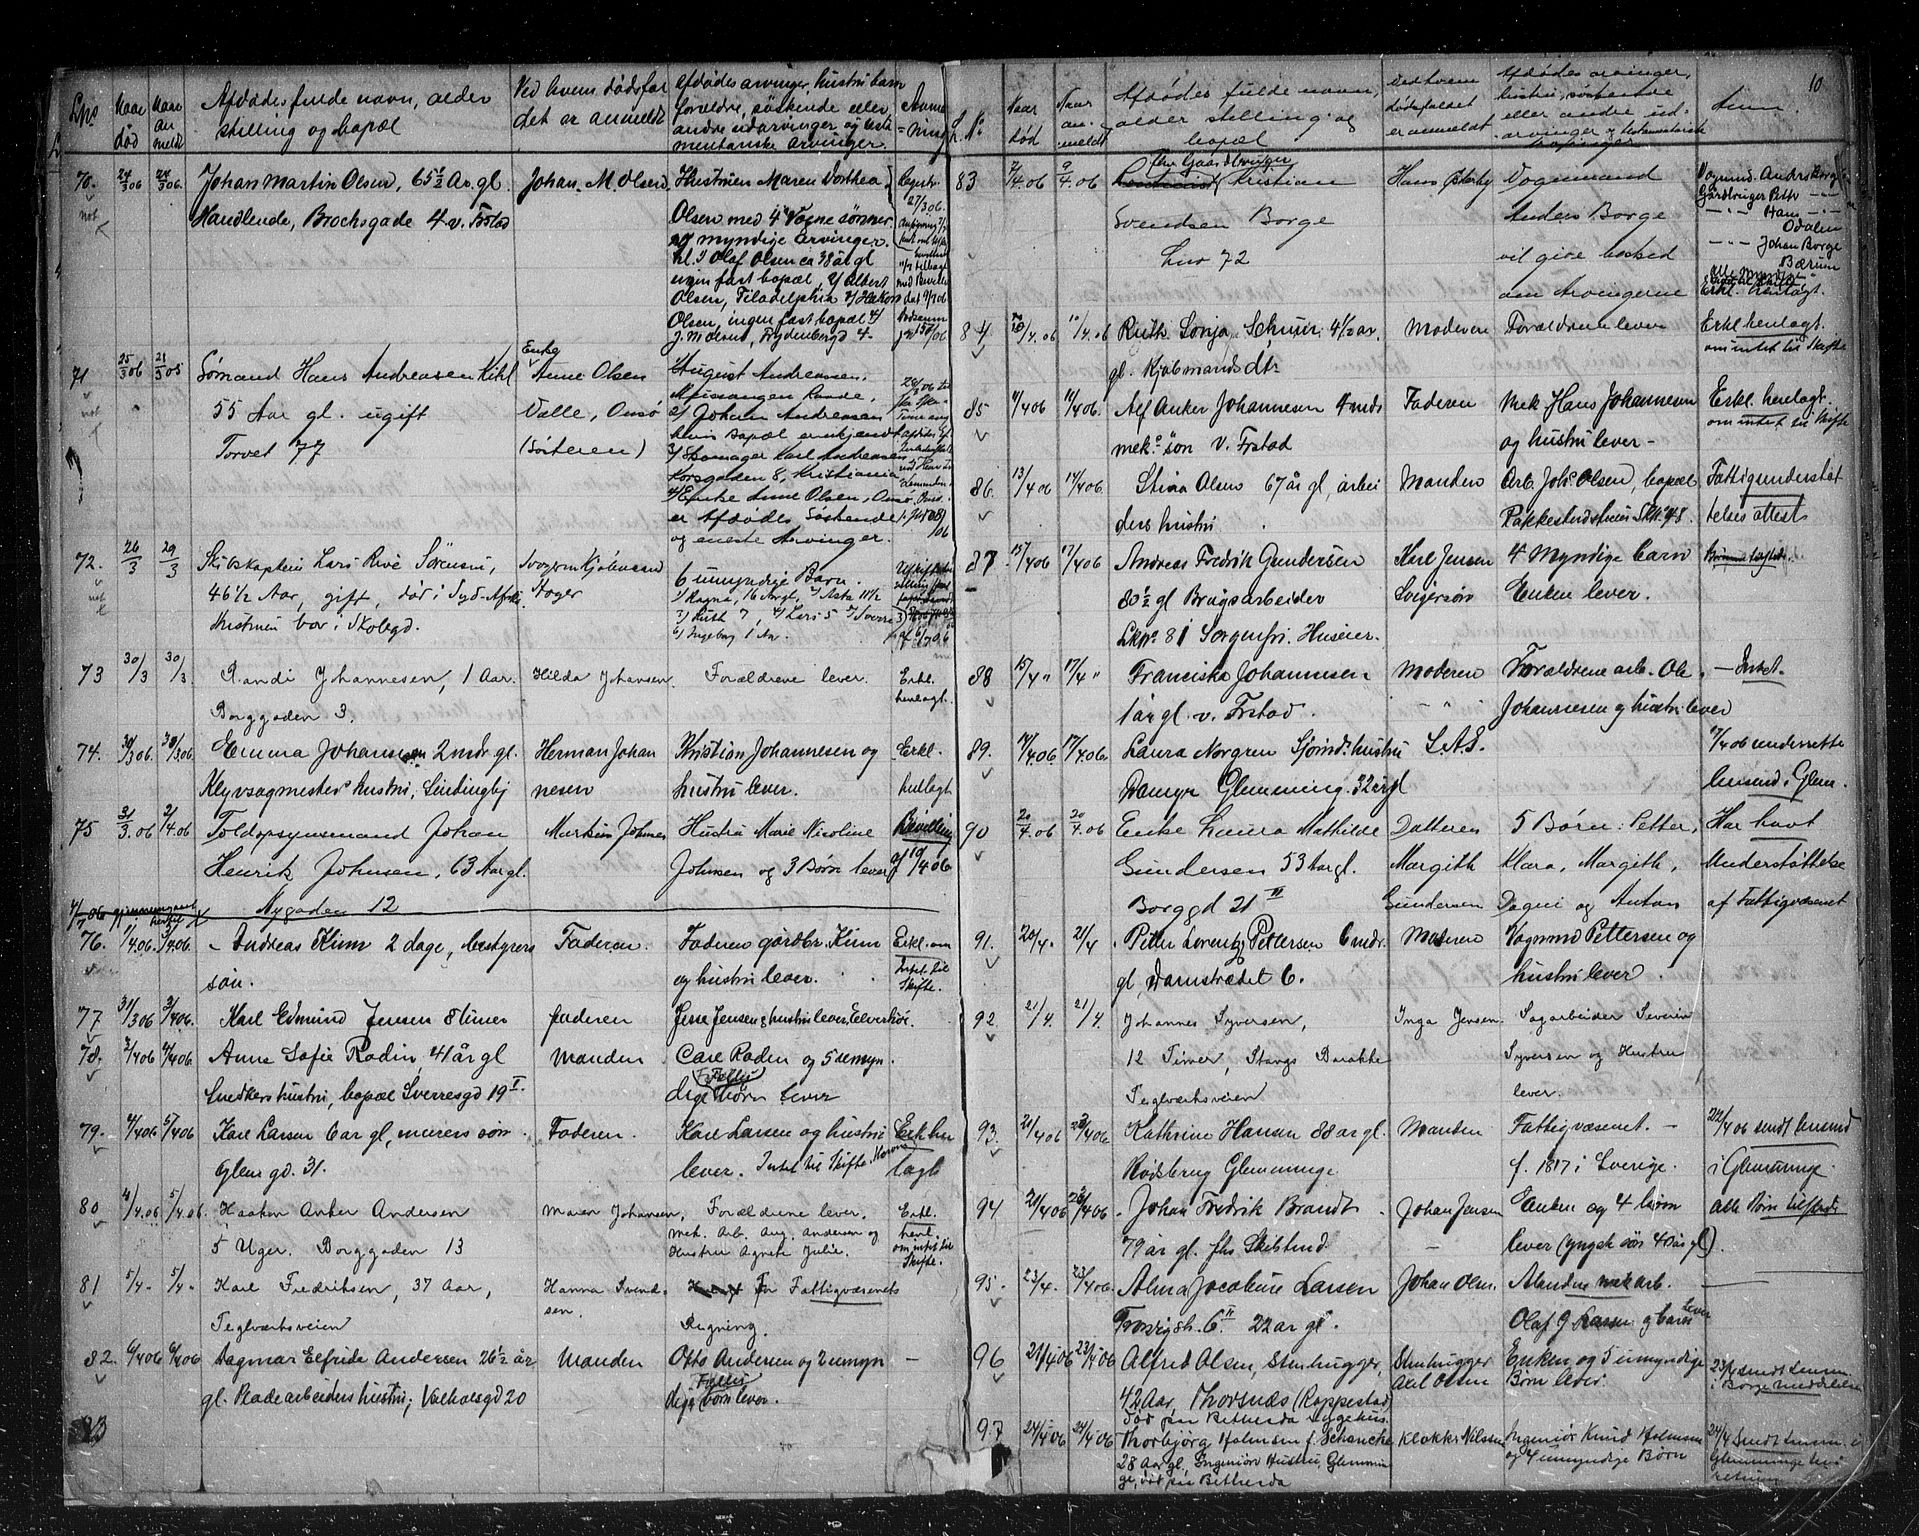 Lnº
Naar død
Naar an meldt
Afdødes fulde navn, alder
stilling og bopæl
Ved hvem dødsfal
det er anmeldt
Afdødes arvinger, hustru barn
forældre, søskende eller
andre udarvinger og testa
mentariske arvinger.
Anmæ
=ning
70. 24/3 06 24/3 06. Johan Martin Olsen, 65 1/2 Ar. gl.
Handlende, Brochsgade 4. v. Frstad
Johan. M. Olsen
Hustruen Maren Dorthea
Olsen med 4 Vogne sønner
myndige arvinger.
1/ Olaf Olsen ca 38 år gl
uden fast bopæl, 2/ Albert
Olsen, Filadelphia 3/ Hakon
Olsen, ingen fast bopæl 4/
J. M. Olsen, Frydenbergd 4.
71 25/3 06 28/3 06 Sømand Hans Andreasen Kihl
55 Aar gl. ugift
Torvet 77
Enke
Anne Olsen
Valle, Onsø
(Søsteren)
August Andreasen,
2/ Johan Andreasen
hvis bopæl er ukjendt
3/ Skomager Karl Andreasen
Korsgaden 8, Kristiania
4/ Enke Anne Olsen, Onsø
er Afdødes Søskende
og eneste Arvinger.
72. 26/3 29/3 Skibskaptein Lars Rive Sørensen,
46 1/2 Aar, gift, død i Syd-Afrika
Hustruen bor i Skolegd.
Svogeren Kjøbmand
Stoger
6 umyndige Barn.
1/ Ragna, 16 Ar gl, 2/ Asta 11 1/2
3/ Ruth 7, 4/ Lars 5 5/ Sverre 3
6/ Ingeborg 1 Aar.
73 30/3 30/3. Randi Johannesen, 1 Aar.
Borggaden 3.
Hilda Johansen.
Forældrene lever.
Erkl.
henlagt.
74. 30/3 06. 30/3 06. Emma Johansen 2 mdr gl.
Klyvsagmesters hustru, Lindingbj
Herman Johan
nesen
Kristian Johannesen og
hustru lever.
Erkl.
henlagt
75 31/3 06 2/4 06. Toldopsynsmand Johan
Henrik Johnsen, 63 Aar gl.
Nygaden 12
Martin Johnsen
Hustru Marie Nicoline
Johnsen og 3 Børn lever
Bevilling
af 19/4 06
4/7 06 gjennemgaaet hertil
76. 1/4 06. 3/4 06. Andreas Kium 2 dage, bestyrers
søn.
Faderen.
Faderen gårdbr. Kium
og hustru lever.
Erkl. om
intet til
Skifte.
77 31/3 06 3/4 06. Karl Edmund Jensen 8 timer
Faderen
Jens Jensen & hustru lever, Elverhøi.
78. 2/4 06 4/4 06. Anne Sofie Rodin, 41 år gl
Snedkershustru, bopæl Sverresgd 19 I.
Manden
Carl Roden og 5 umyn
dige Fælles børn lever
79. 4/4 06 5/4 06 Karl Larsen 6 ar gl, murers søn
Glemgd. 31.
Faderen.
Karl Larsen og hustru
lever. Intet til Skifte.
Erkl. hen
lagt
80 4/4. 06 5/4. 06. Haakon Anker Andersen
5 Uger. Borggaden 13
Maren Johansen,
Forældrene lever.
mek. Arb. Aug. Andersen og
Hustru Agnete Julie.
Erkl.
henl.
om intet til
Skifte.
81 5/4. 5/4. Karl Fredriksen, 37 Aar,
Teglværksveien
Hanna Svend-
sen.
For Fattigvæsenets
Regning.
82. 6/4 06 6/4 06 Dagmar Elfrida Andersen 26 1/2 år
gl. Pladearbeiders hustru, Valhalsgd 20
Manden
Otto Andersen og 2 umyn
dige Fælles børn lever.
—
83
10
L. Nº
Naar død
Naar an- meldt
Afdødes fulde navn,
alder stilling og
bopæl
Ved hvem
dødsfaldet
er anmeldt
Afdødes arvinger,
hustru, søskende
eller andre ud-
arvinger og testamentarisk
arvinger
Anm.
83 7/4. 06 9/4. 06 Fhv Gaardbruger
Kristian
Svendsen Borge
Lno 72
Hans Østerby
Vognmand
Anders Borge
vil give besked
om Arvingerne
Vogmd. Anders Borge
Gårdbruger Petter —"—
—"— Hans —"—
Odalen
—"— Johan Borge
Bærum
alle Myndige
Erkl. henlagt.
84. 10/4. 06 10/4. 06 Ruth Sonja Schuur 4 1/2 ar.
gl. Kjøbmands dtr
Moderen
Forældrene lever
Erkl henlagt.
om intet til Skifte
85 11/4 06 11/4 06. Alf Anker Johannesen 4 mds
mek.s søn V. Frstad
Faderen
Mek Hans Johannesen
og hustru lever —
Erkl. henlagt.
om intet til Skifte
86. 13/4 06 14/4 06. Stina Olsen 67 år gl, arbei
ders hustru
Manden
Arb. Johs Olsen, bopæl
Fattigunderstøt
telses attest
87 15/4 06 17/4 06 Andreas Fredrik Gundersen
80 1/2 gl Brugsarbeider
Lkno. 81 Sorgenfri. Huseier.
Karl Jensen
Svigersøn
4 Myndige barn
Enken lever.
88 15/4 " 17/4 " Franciska Johannesen
1 ar gl. v. Frstad.
Moderen
Forældrene arb. Ole
Johannesen og hustru lever
— Intet.
89. 14/4 06 17/4 06. Laura Norgren Sjømds hustru
Damyr Glemminge. 32 år gl
L. A. S.
17/4 06 underrettet
lensmd i Glem.
90 20/4. 06 20/4. 06 Enke Laura Mathilde
Gundersen 53 Aar gl.
Borggd 21 II
Datteren
Margith
Gundersen
5 Børn: Petter,
Klara, Margith,
Dagni og Anton
Har havt
Understøttelse
af Fattigvæsenet
91. 20/4. 21/4 Petter Lorentz Pettersen 6 mdr.
gl, Damstrædet 6.
Moderen
Vogmnd Pettersen og
hustru lever.
92. 21/4. 21/4. Johannes Syversen,
12 Timer, Stangs Barakke
Teglværksveien
Inga Jensen.
Sagarbeider Severin
Syversen og Hustru
lever.
93. 21/4 06 23/4 06. Kathrine Hansen 88 ar gl.
Rødsbrug Glemminge.
Manden
Fattigvæsenet. —
f. 1817 i Sverige.
24/4 06 sendt lensmd
i Glemminge.
94 21/4 06 23/4 06. Johan Fredrik Brandt
79 år gl. fhv Skibstmd.
Johan Jensen
—
Enken og 4 børn
lever (yngste søn 40 års gl).
alle Børn tilstede
95. 23/4. 23/4 06. Alma Jacobine Larsen
6 II 22 ar gl.
Johan Olsen.
Manden mek arb.
Olaf J Larsen og barn lever
96 21/4 06 23/4 06 Alfred Olsen, Stenhugger,
42 Aar, Thorsnæs (Roppestad)
Død paa Bethesda sygehus.
Stenhugger
Axel Olsen
Enken og 5 umyndige
Børn lever
23/4 sendt Lensm.
i Borge meddelelse
97 24/4 06 24/4 06 Thorbjørg Holmsen f. Schancke
28 Aar gl, Ingeniør Hustru, Glemmin
ge, død paa Bethesda
Klokker Nilssen
Ingeniør Knud Holmsen
og 4 umyndige Børn
24/4 Sendt Lensm. i
Glemminge